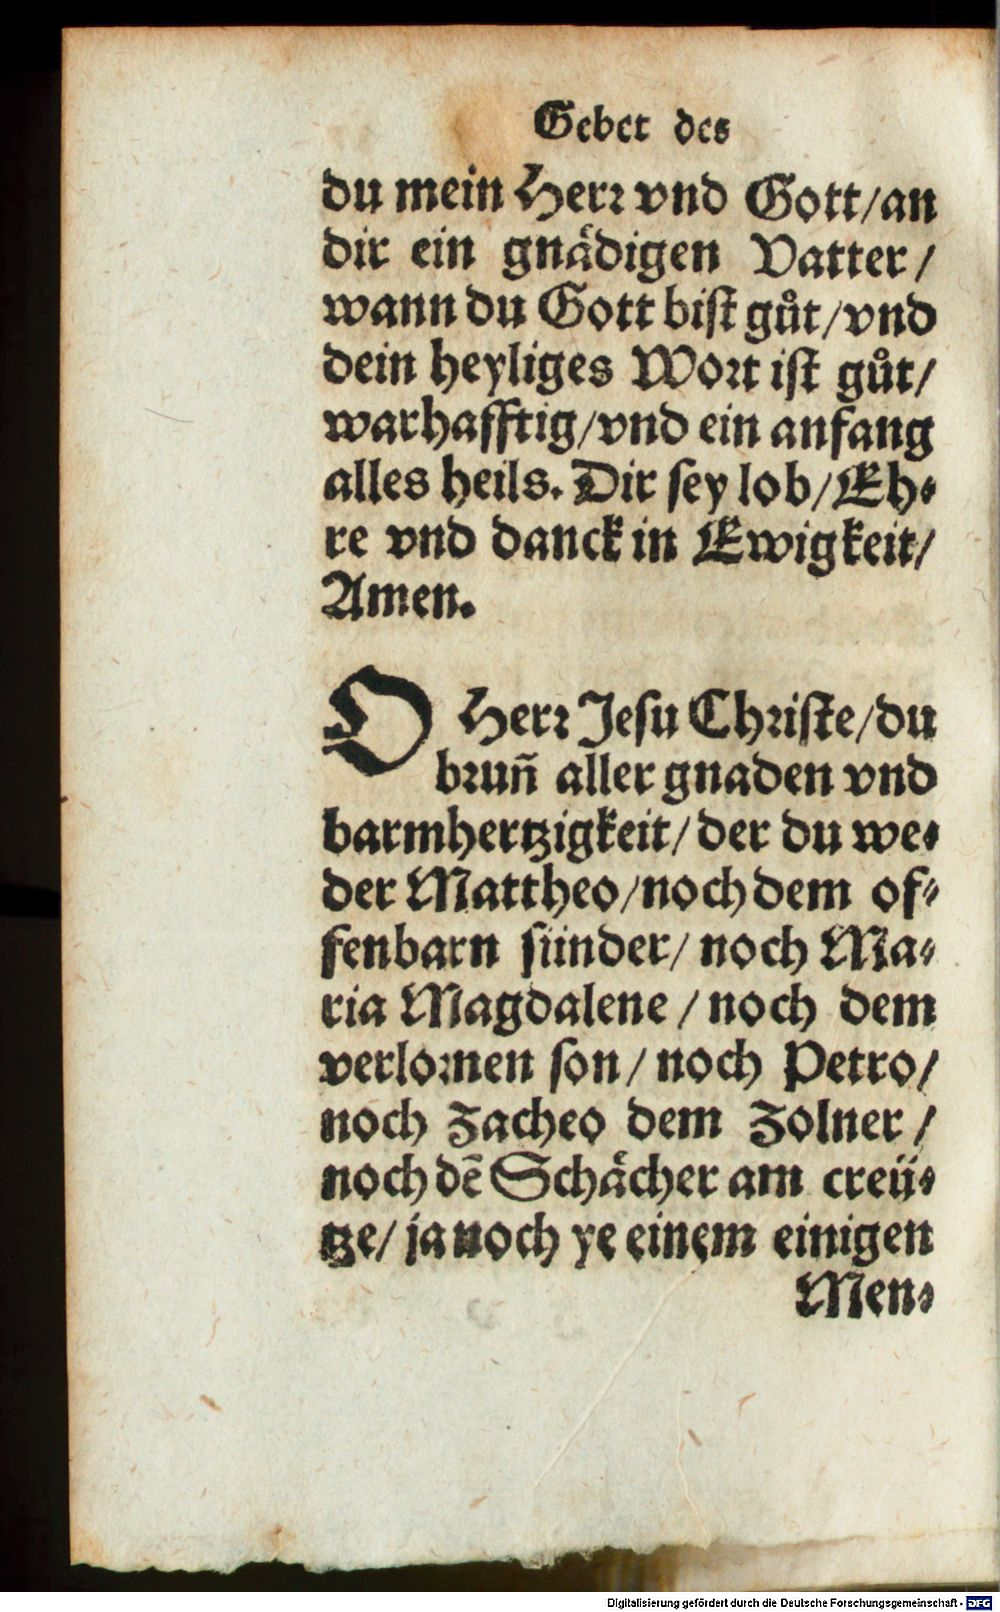 Gebet des
du mein Herꝛ vnd Gott/an
dir ein gnaͤdigen Vatter/
wann du Gott biſt guͦt/vnd
dein heyliges Woꝛt iſt guͦt/
warhafftig/vnd ein anfang
alles heils. Dir ſey lob/Eh⸗
re vnd danck in Ewigkeit/
Amen.
O Herꝛ Jeſu Chꝛiſte/du
bꝛun̄ aller gnaden vnd
barmhertzigkeit/der du we⸗
der Mattheo/noch dem of⸗
fenbarn ſünder/noch Ma⸗
ria Magdalene/noch dem
verloꝛnen ſon/noch Petro/
noch Zacheo dem Zolner/
noch dē Schaͤcher am creü⸗
tze/ja noch ye einem einigen
Men⸗
Digitalisierung gefördert durch die Deutsche Forschungsgemeinschaft - DFG